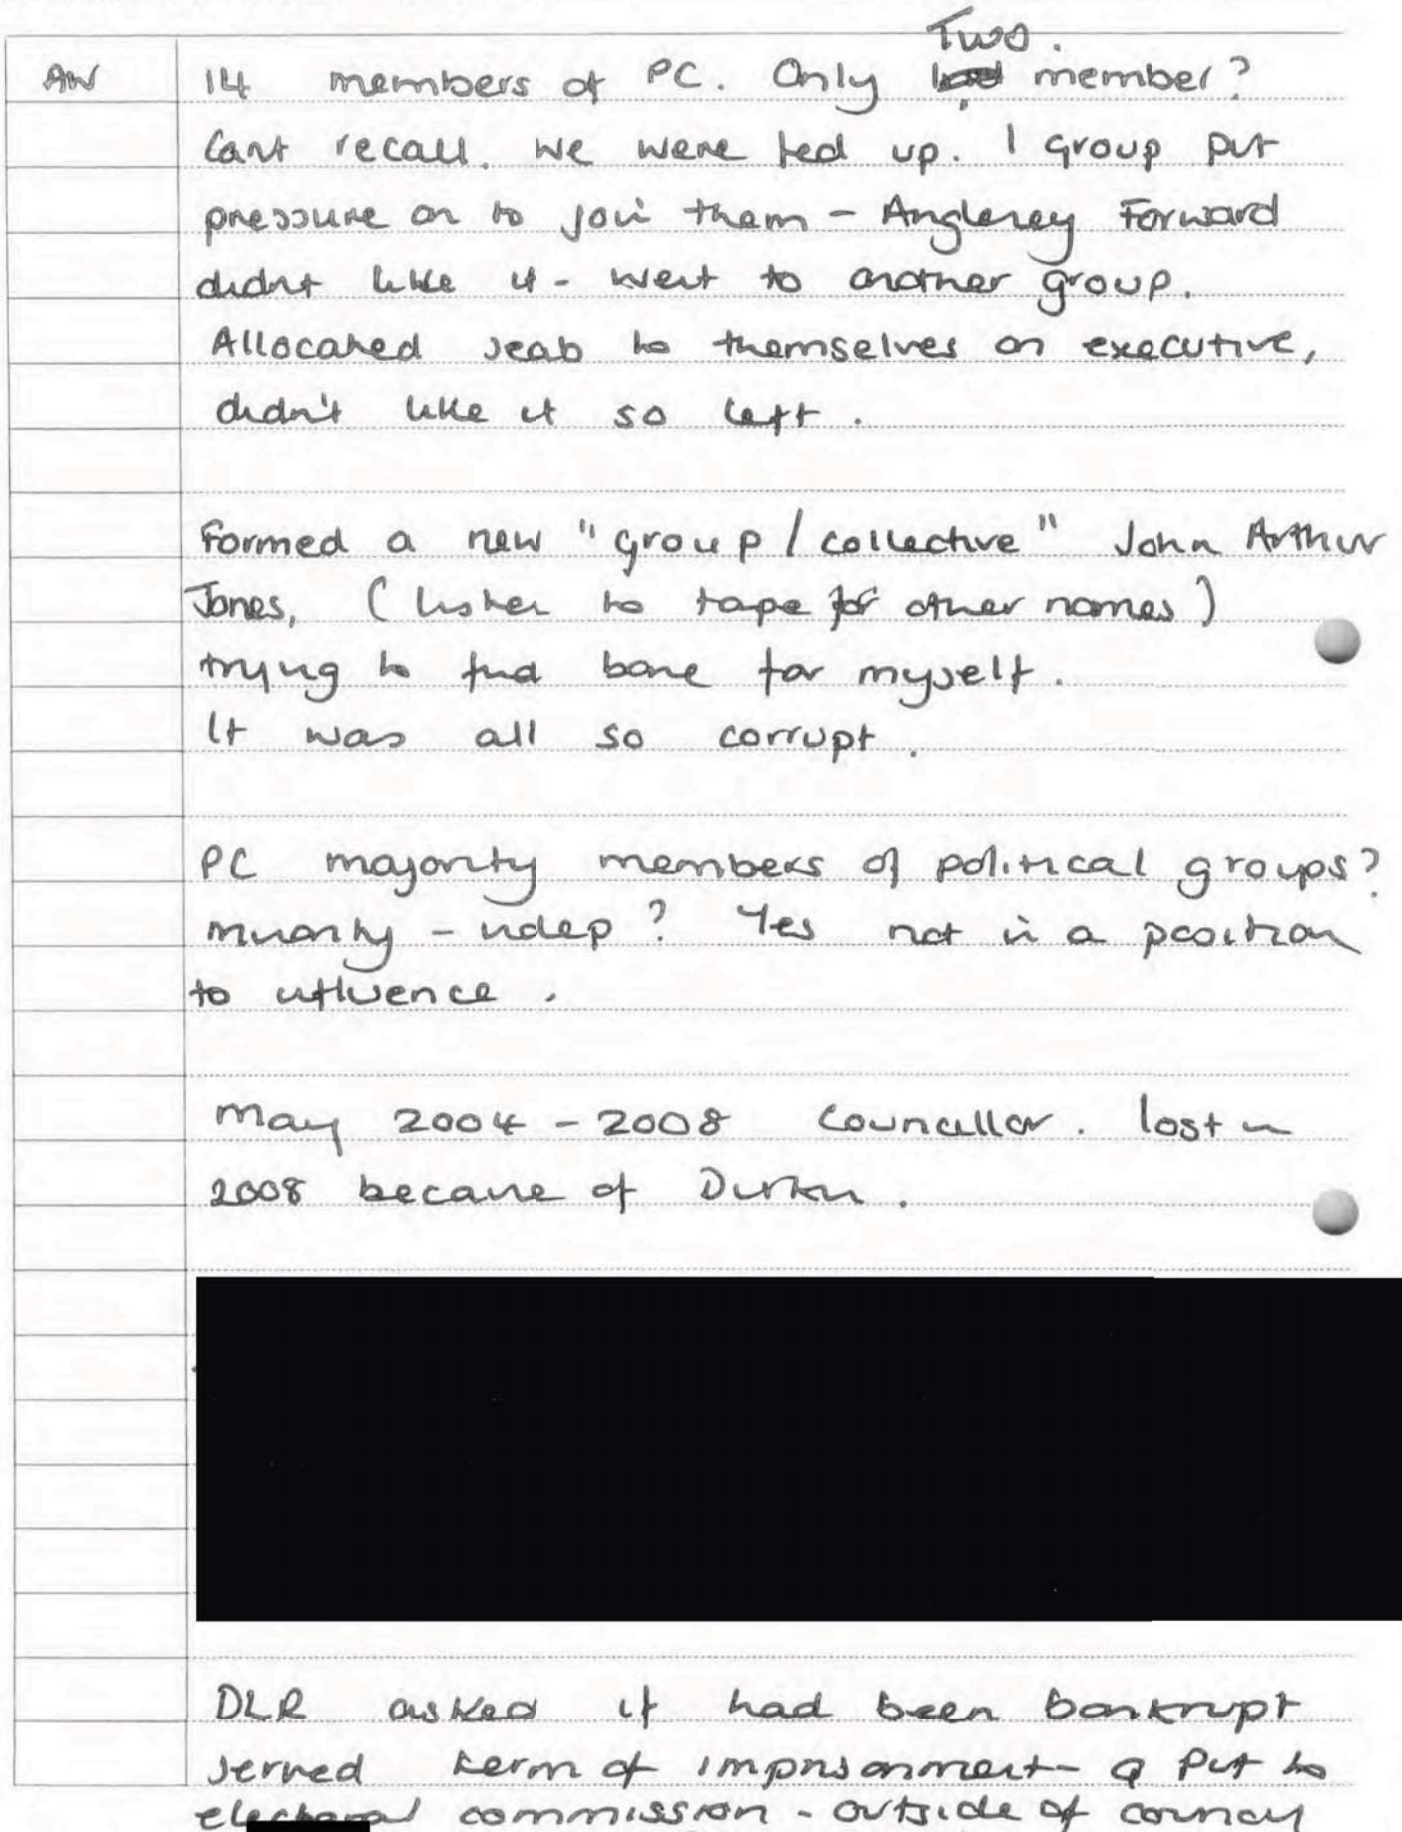 Two.
AW 14 members of PC. Only member?
Cant recall. We were fed up. 1 group put
pressure on to join them - Anglesey Forward
didnt like it - went to another group.
Allocated seats to themselves on executive,
didn't like it so left.
Formed a new "group/collective" John Arthur
Jones, (listen to tape for other names)
trying to find base for myself.
It was all so corrupt.
PC majority members of political groups?
minority - indep? Yes not in a position
to influence.
May 2004 - 2008 Councillor. lost in
2008 because of Durkin.
DLR asked if had been bankrupt
served term of imprisonment - Q Put to
electoral commission - outside of council